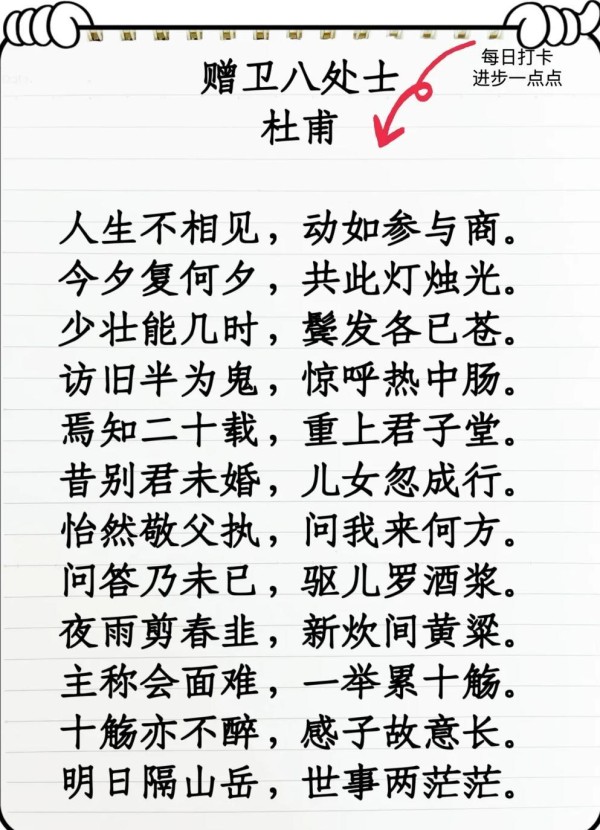 每日打卡
进步一点点
赠卫八处士
杜甫
人生不相见，动如参与商。
今夕复何夕，共此灯烛光。
少壮能几时，鬓发各已苍。
访旧半为鬼，惊呼热中肠。
焉知二十载，重上君子堂。
昔别君未婚，儿女忽成行。
怡然敬父执，问我来何方。
问答乃未已，驱儿罗酒浆。
夜雨剪春韭，新炊间黄粱。
主称会面难，一举累十觞。
十觞亦不醉，感子故意长。
明日隔山岳，世事两茫茫。